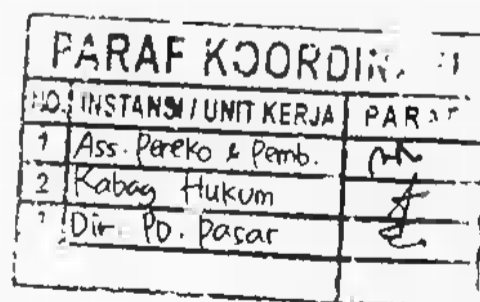 PARAF KOORDIN
NO. INSTANSI / UNIT KERJA PARAF
1 Ass. Pereko & Pemb.
2 Kabag Hukum
Dir PD. Pasar